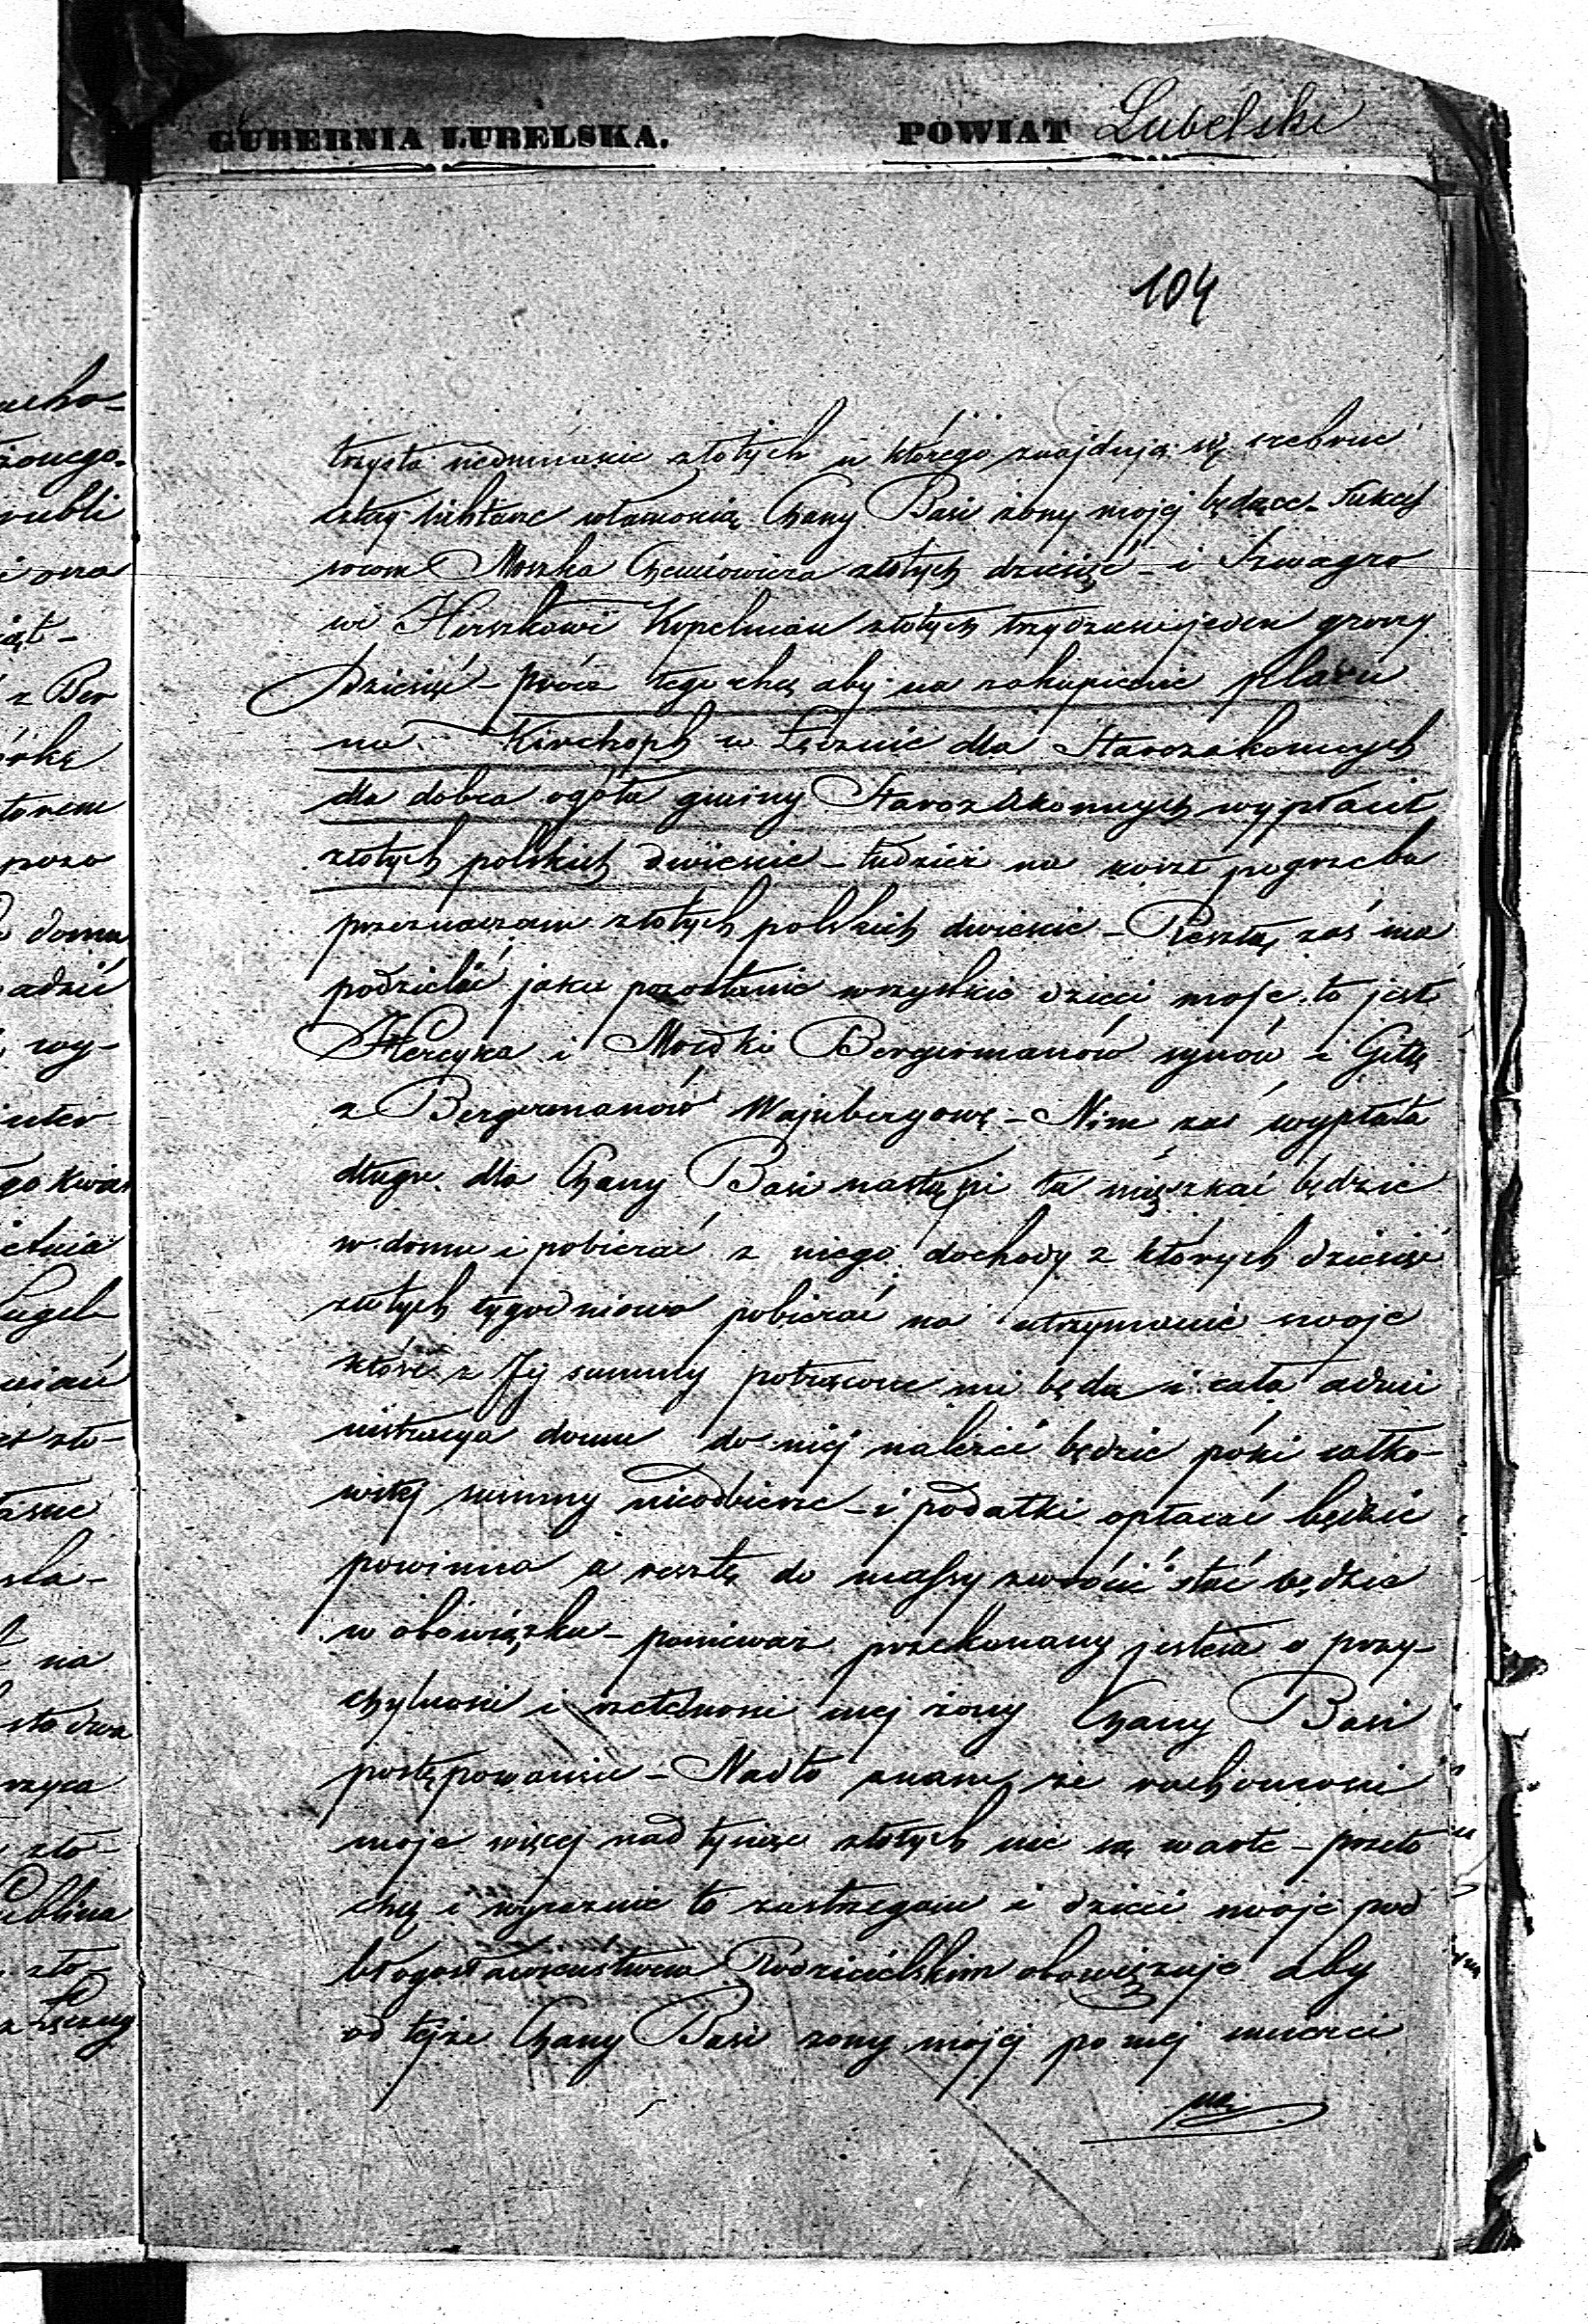 GUBERNIA LUBELSKA. POWIAT Lubelski
104
trzysta siedmnaście złotych u którego znajdują się srebrne
cztery lichtarze własnością Chany Basi żony mojej będące - Sukces
sorom Moszka Chemiowicza złotych dziesięć - i Szwagro
wi Herszkowi Kopelman złotych trzydzieści jeden groszy
Dziesięć - prócz tego chcę aby na zakupienie placu
na Kirchoph w Łęcznie dla Starozakonnych
dla dobra ogółu gminy Starozakonnych wypłacił
złotych polskich dwieście - tudzież na koszt pogrzebu
przeznaczam złotych polskich dwieście - Resztę zaś ma
podzielić jaka pozostanie wszystkie dzieci moje to jest
Hercyka i Mordki Bergermanów synów i Gitlę
z Bergermanów Wajnbergowę - Nim zaś wypłata
długu dla Chany Basi nastąpi ta mięszkać będzie
w domu i pobierać z niego dochody z których dziesięć
złotych tygodniowo pobierać na utrzymanie swoje
które z Jej summy potrącone mi będą i cała admi
nistracya domu do niej należeć będzie póki całko-
witej summy nieodbierze - i podatki opłacać będzie
powinna a resztę do massy zwrócić stać będzie
w obowiązku - ponieważ przekonany jestem o przy-
chylności i rzetelności mej żony Chany Basi
postępowaniu - Nadto znam że ruchomości
moje więcej nad tysiąc złotych nie są warte - przeto
chcę i wyraźnie to zastrzegam i dzieci moje pod
błogosławieństwem Rodzicielskim obowięzuję aby
od tejże Chany Basi żony mojej po mej śmierci